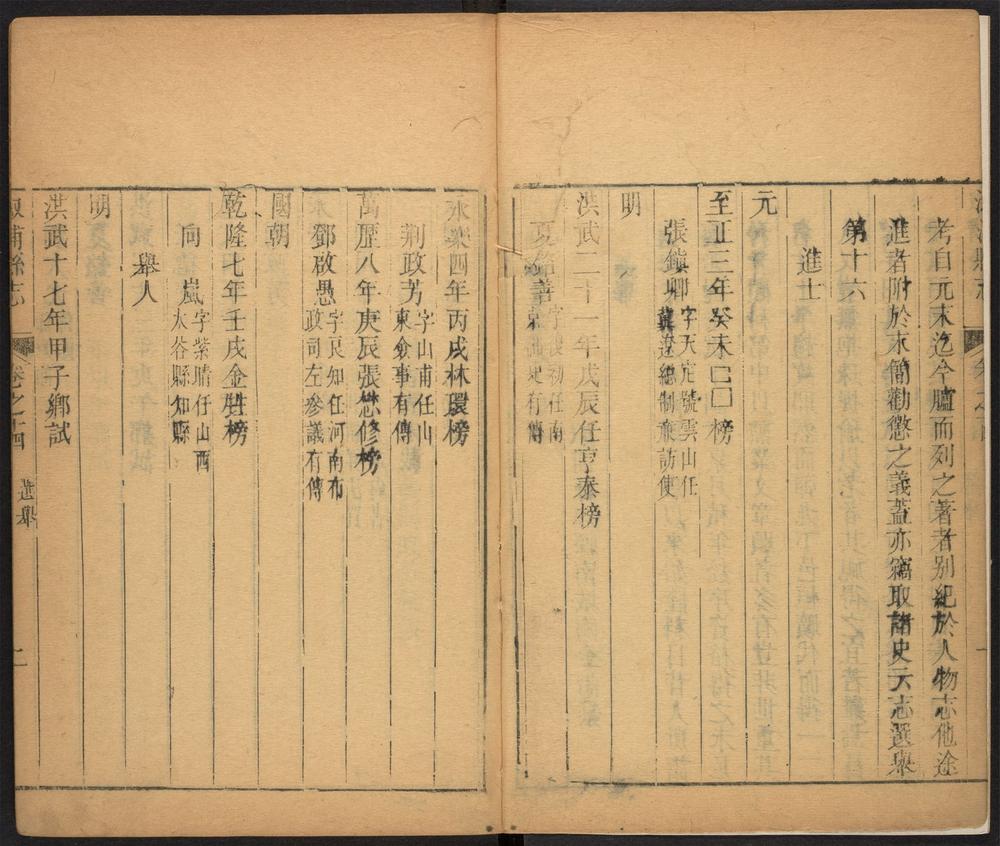 考自元末迄今臚而列之著者别紀於人物志他途
進者附於末簡勸懲之義蓋亦竊取諸史云志選舉
第十六
進士
元
至正三年癸未□□榜
張鎮卿字天定號雲山任
冀遼總制廉訪使
明
洪武二十一年戊辰任亨泰榜
善任南
有傳
永樂四年丙戌林環榜
荆政芳字山甫任山
東僉事有傳
萬歷八年庚辰張懋修榜
鄧啟愚字艮知任河南布
政司左參議有傳
國朝
乾隆七年壬戌金甡榜
向嵐字紫晴任山西
太谷縣知縣
舉人
明
洪武十七年甲子鄉試
溆浦縣志 卷之十四 選舉 二